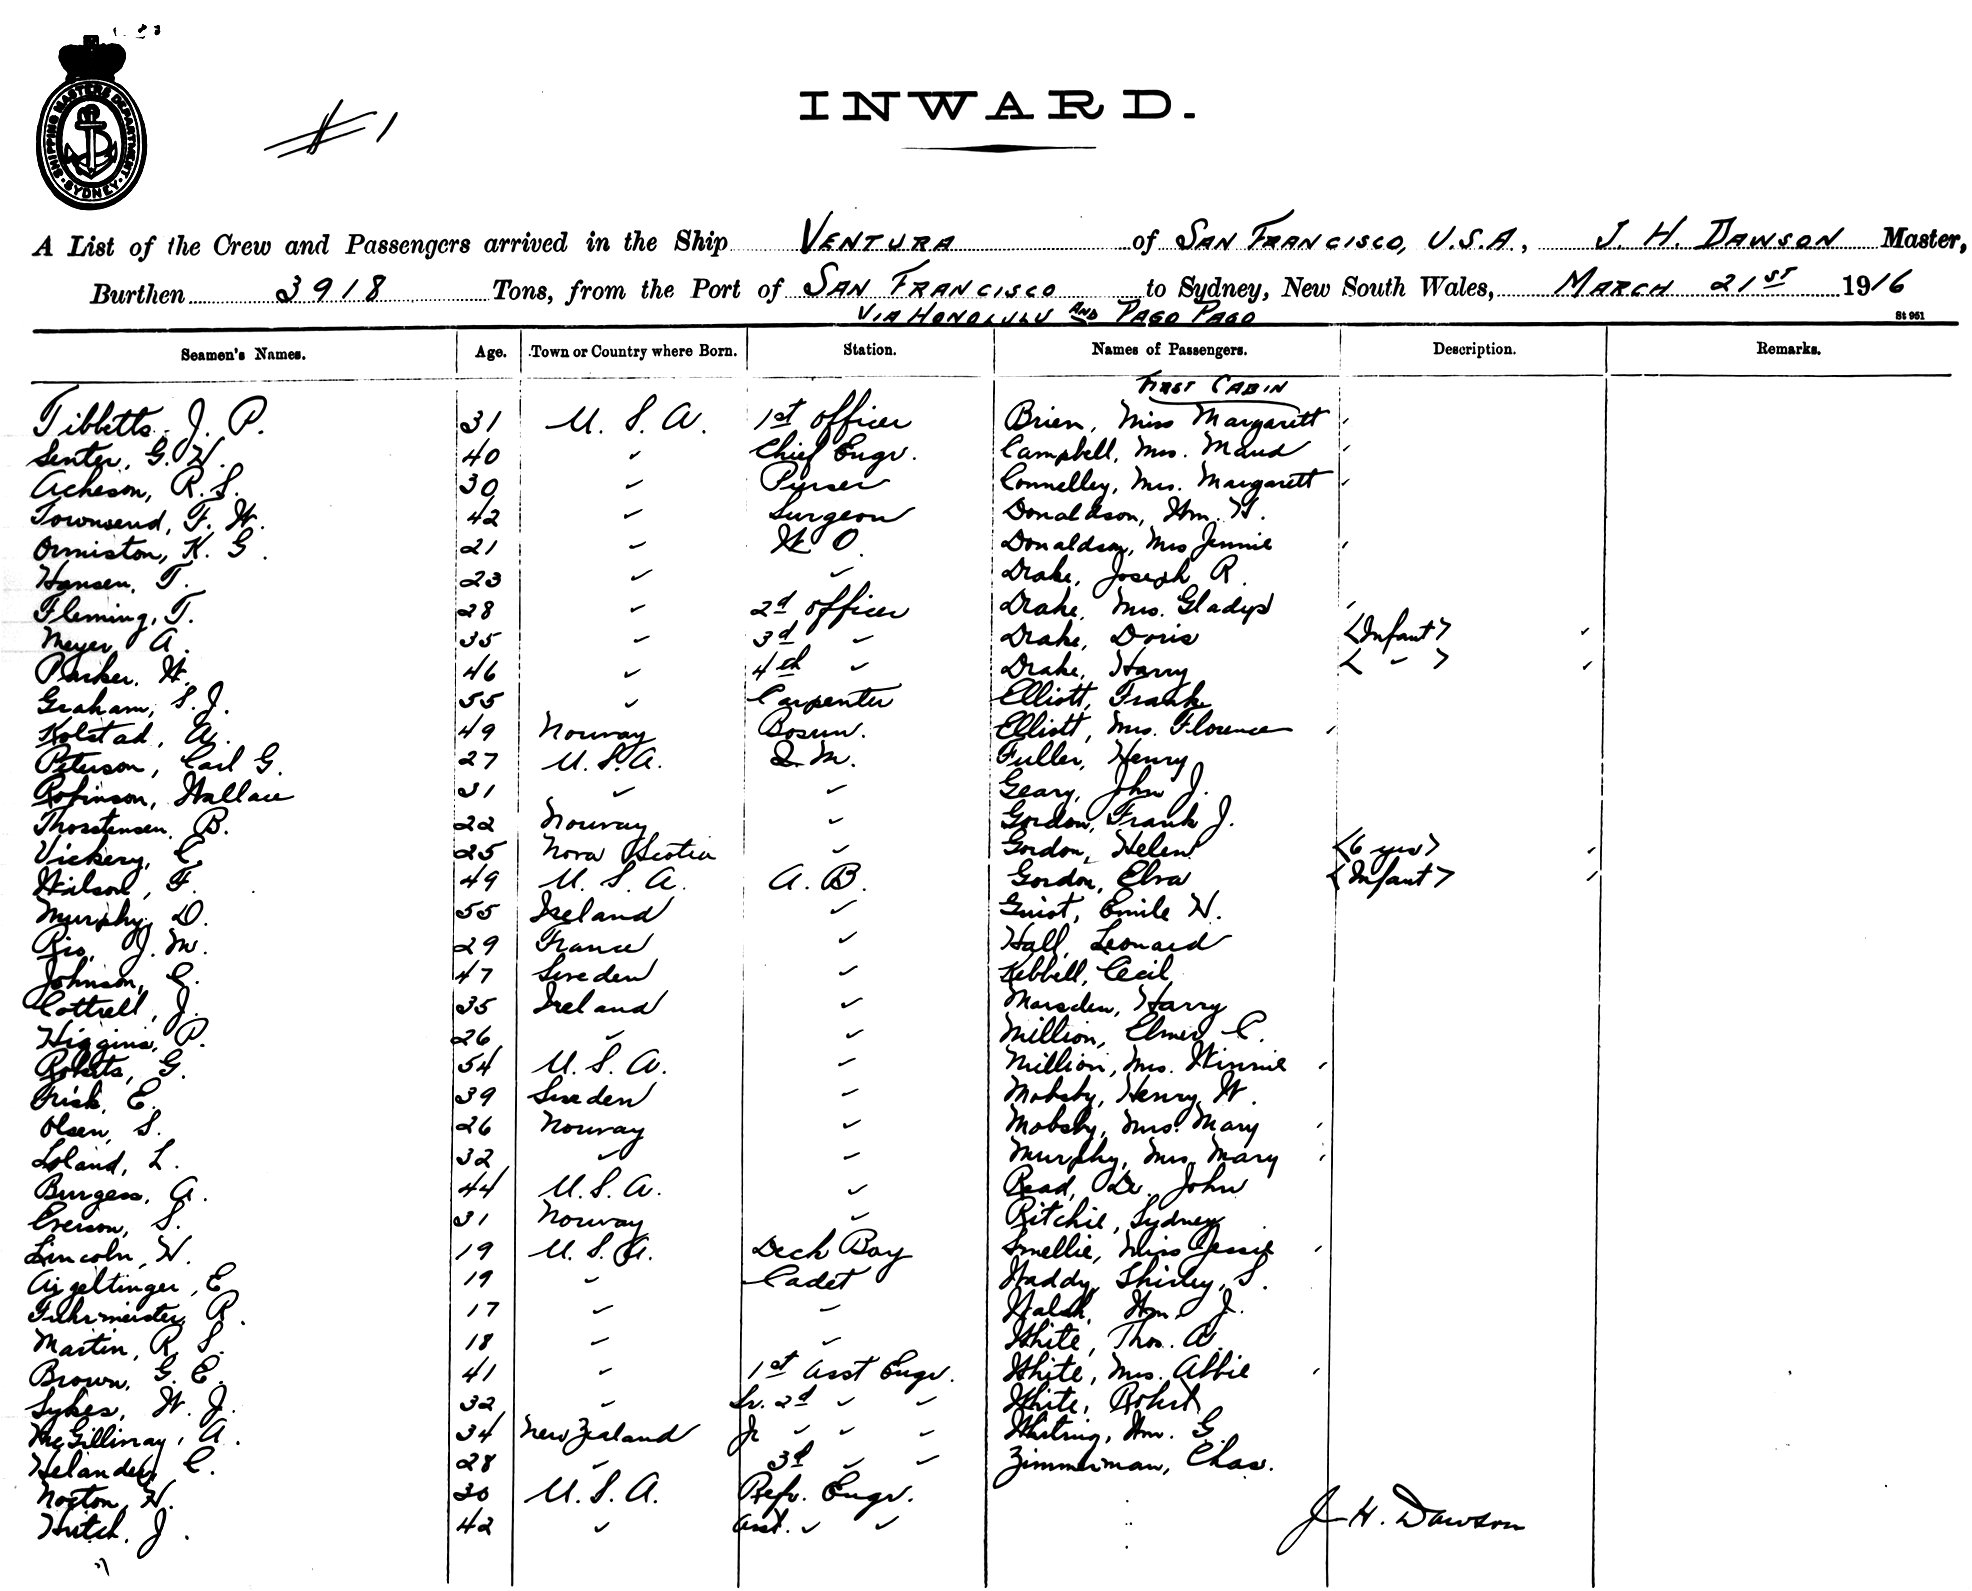 SHIPPING MASTERS DEPARTMENT · SYDNEY ·
# 1
INWARD.
A List of the Crew and Passengers arrived in the Ship VENTURA of SAN FRANCISCO, U.S.A., J. H. DAWSON Master,
Burthen 3918 Tons, from the Port of SAN FRANCISCO to Sydney, New South Wales, MARCH 21ST 1916
VIA HONOLULU AND PAGO PAGO
St 961
Seamen's Names. Age. Town or Country where Born. Station. Names of Passengers. Description. Remarks.
FIRST CABIN
Tibbetts, J. P. 31 U. S. A. 1st Officer Brien, Miss Margarett
Senter, G. W. 40 " Chief Engr. Campbell, Mrs. Maud
Acheson, R. S. 30 " Purser Connelley, Mrs. Margarett
Townsend, F. W. 42 " Surgeon Donaldson, Wm. H.
Ormiston, K. G. 21 " W. O. Donaldson, Mrs Jennie
Hansen, T. 23 " " Drake, Joseph R.
Fleming, T. 28 " 2d Officer Drake, Mrs. Gladys
Meyer, A. 35 " 3d " Drake, Doris <Infant>
Parker, W. 46 " 4th " Drake, Harry < " >
Graham, S. J. 55 " Carpenter Elliott, Frank
Kolstad, A. 49 Norway Bosun. Elliott, Mrs. Florence
Peterson, Carl G. 27 U. S. A. Q. M. Fuller, Henry
Robinson, Wallace 31 " " Geary, John J.
Thorstensen, B. 22 Norway " Gordon, Frank J.
Vickery, E. 25 Nova Scotia " Gordon, Helen <6 yrs>
Wilson, F. 49 U. S. A. A. B. Gordon, Elva <Infant>
Murphy, D. 55 Ireland " Guiot, Emile W.
Rio, J. M. 29 France " Hall, Leonard
Johnson, C. 47 Sweden " Kebbell, Cecil
Cottrell, J. 35 Ireland " Marsden, Harry
Higgins, P. 26 " " Million, Elmer C.
Roberts, G. 54 U. S. A. " Million, Mrs. Winnie
Frisk, E. 39 Sweden " Mobsby, Henry W.
Olsen, S. 26 Norway " Mobsby, Mrs. Mary
Loland, L. 32 " " Murphy, Mrs. Mary
Burgess, A. 44 U. S. A. " Read, Dr. John
Everson, S. 31 Norway " Ritchie, Sydney
Lincoln, W. 19 U. S. A. Deck Boy Smellie, Miss Jessie
Aigeltinger, E. 19 " Cadet Waddy, Shirley, S.
Fuhrmeister, R. 17 " " Walsh, Wm. J.
Martin, R. S. 18 " " White, Thos. A.
Brown, G. E. 41 " 1st Asst Engr. White, Mrs. Abbie
Sykes, W. J. 32 " Sr. 2d " " White, Robert
McGillivray, A. 34 New Zealand Jr " " " Whiting, Wm. G.
Helander, C. 28 " 3d " " Zimmerman, Chas.
Norton, W. 30 U. S. A. Refr. Engr.
Hutch, J. 42 " Asst. " "
J. H. Dawson